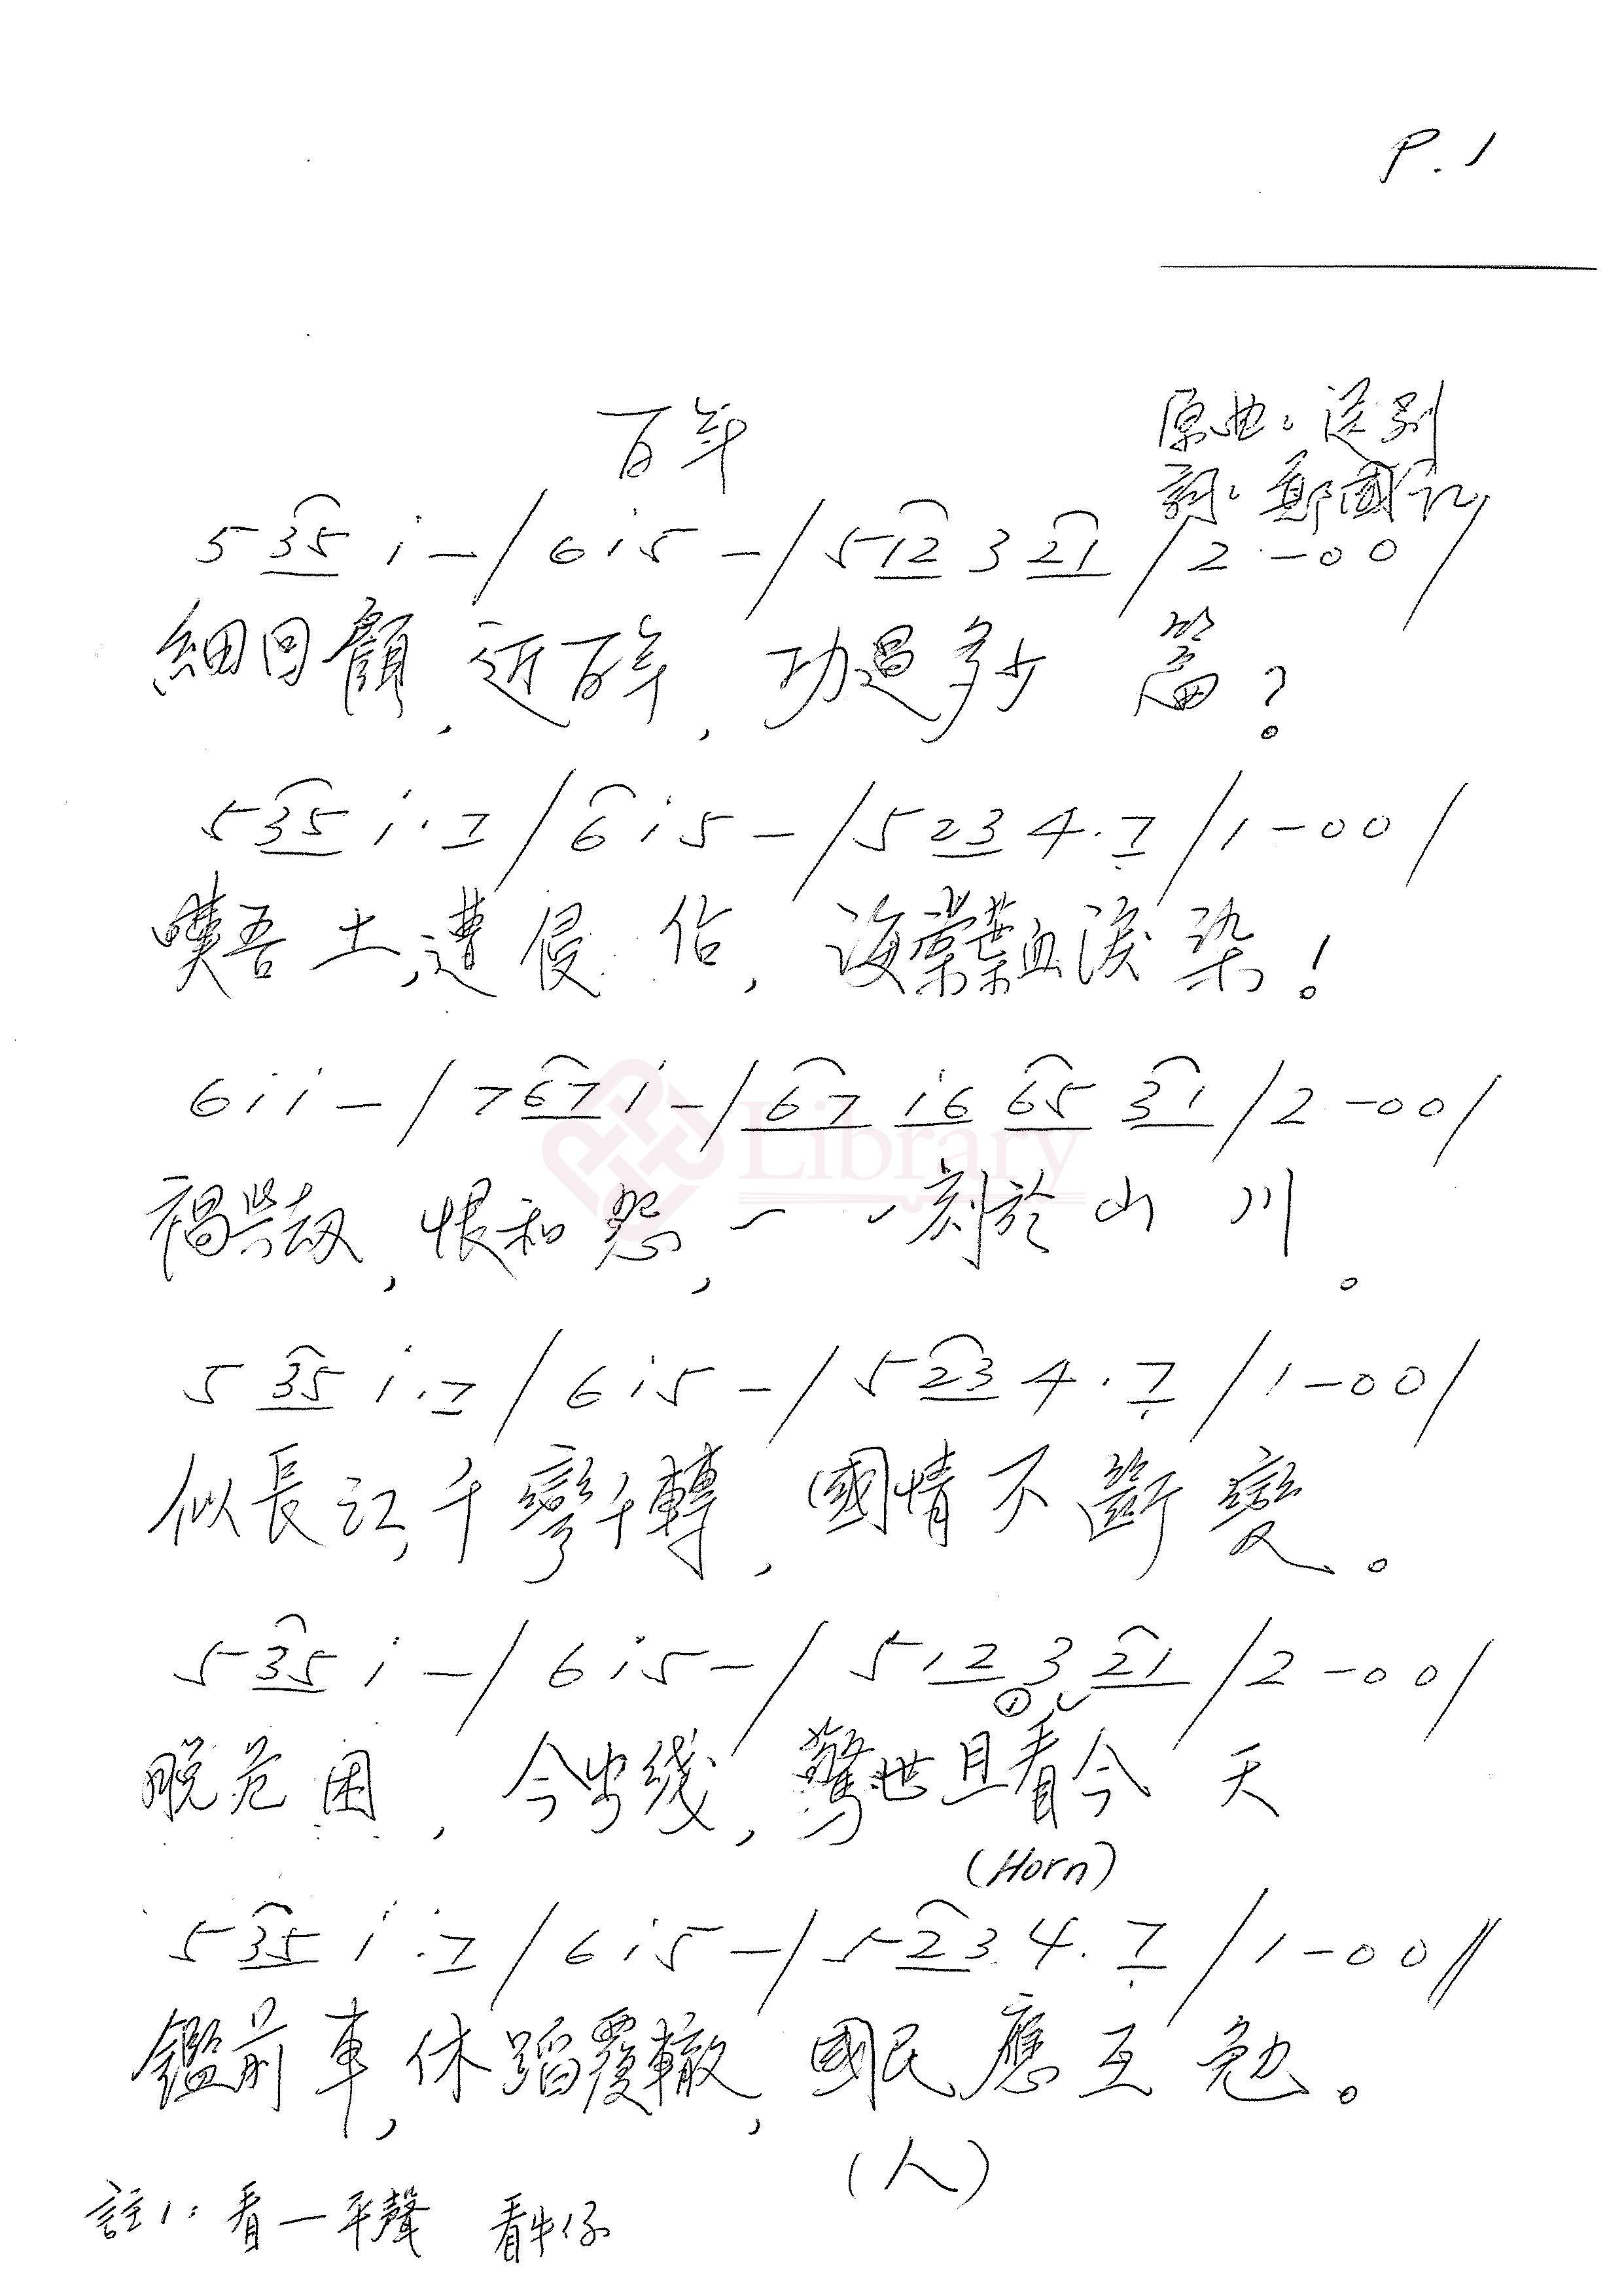 P. 1
百年
原曲：送別
詞：鄭國江
5 35 i - / 6 i 5 - / 5 12 3 21 / 2 - 0 0 /
細回顧，近百年，功過多少篇？
5 35 i · 7 / 6 i 5 - / 5 23 4 · 7̣ / 1 - 0 0 /
嘆吾土，遭侵佔，海棠葉血淚染！
6 i i - / 7 67 i - / 67 i6 65 31 / 2 - 0 0 /
Library
禍與劫，恨和怨，一一刻於山川。
5 35 i · 7 / 6 i 5 - / 5 23 4 · 7̣ / 1 - 0 0 /
似長江，千彎千轉，國情不斷變。
5 35 i - / 6 i 5 - / 5 12 3 21 / 2 - 0 0 /
①
脫危困，今出綫，驚世且看今天
(Horn)
5 35 i · 7 / 6 i 5 - / 5 23 4 · 7̣ / 1 - 0 0 //
鑑前車，休蹈覆轍，國民應互勉。
(人)
註1：看—平聲 看牛仔